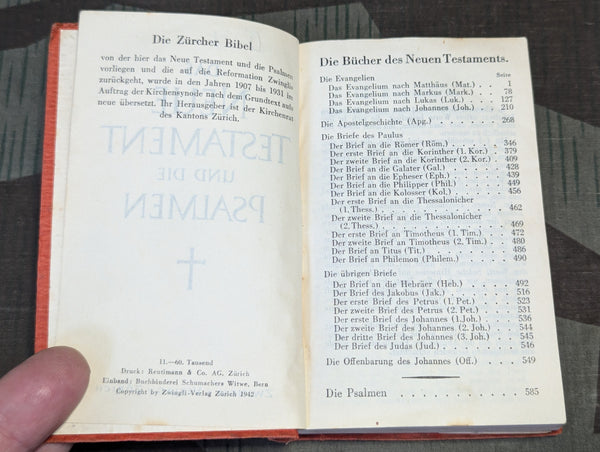 Die Zürcher Bibel
von der hier das Neue Testament und die Psalmen
vorliegen und die auf die Reformation Zwinglis
zurückgeht, wurde in den Jahren 1907 bis 1931 im
Auftrag der Kirchensynode nach dem Grundtext aufs
neue übersetzt. Ihr Herausgeber ist der Kirchenrat
des Kantons Zürich.
TESTAMENT
UND DIE
PSALMEN
11.—60. Tausend
Druck: Reutimann & Co. AG. Zürich
Einband: Buchbinderei Schumachers Witwe, Bern
Copyright by Zwingli-Verlag Zürich 1942
Die Bücher des Neuen Testaments.
Seite
Die Evangelien
Das Evangelium nach Matthäus (Mat.) . . 1
Das Evangelium nach Markus (Mark.) . . 78
Das Evangelium nach Lukas (Luk.) . . . 127
Das Evangelium nach Johannes (Joh.) . . 210
Die Apostelgeschichte (Apg.) . . . . . . 268
Die Briefe des Paulus
Der Brief an die Römer (Röm.) . . . . . 346
Der erste Brief an die Korinther (1. Kor.) . 379
Der zweite Brief an die Korinther (2. Kor.) . 409
Der Brief an die Galater (Gal.) . . . . . 428
Der Brief an die Epheser (Eph.) . . . . . 439
Der Brief an die Philipper (Phil.) . . . . 449
Der Brief an die Kolosser (Kol.) . . . . . 456
Der erste Brief an die Thessalonicher
(1. Thess.) . . . . . . . . . . 462
Der zweite Brief an die Thessalonicher
(2. Thess.) . . . . . . . . . . 469
Der erste Brief an Timotheus (1. Tim.) . . 472
Der zweite Brief an Timotheus (2. Tim.) . . 480
Der Brief an Titus (Tit.) . . . . . . . 486
Der Brief an Philemon (Philem.) . . . . . 490
Die übrigen Briefe
Der Brief an die Hebräer (Heb.) . . . . . 492
Der Brief des Jakobus (Jak.) . . . . . . 516
Der erste Brief des Petrus (1. Pet.) . . . . 523
Der zweite Brief des Petrus (2. Pet.) . . . 531
Der erste Brief des Johannes (1.Joh.) . . . 536
Der zweite Brief des Johannes (2. Joh.) . . 544
Der dritte Brief des Johannes (3. Joh.) . . 545
Der Brief des Judas (Jud.) . . . . . . . 546
Die Offenbarung des Johannes (Off.) . . . 549
Die Psalmen . . . . . . . . . . 585